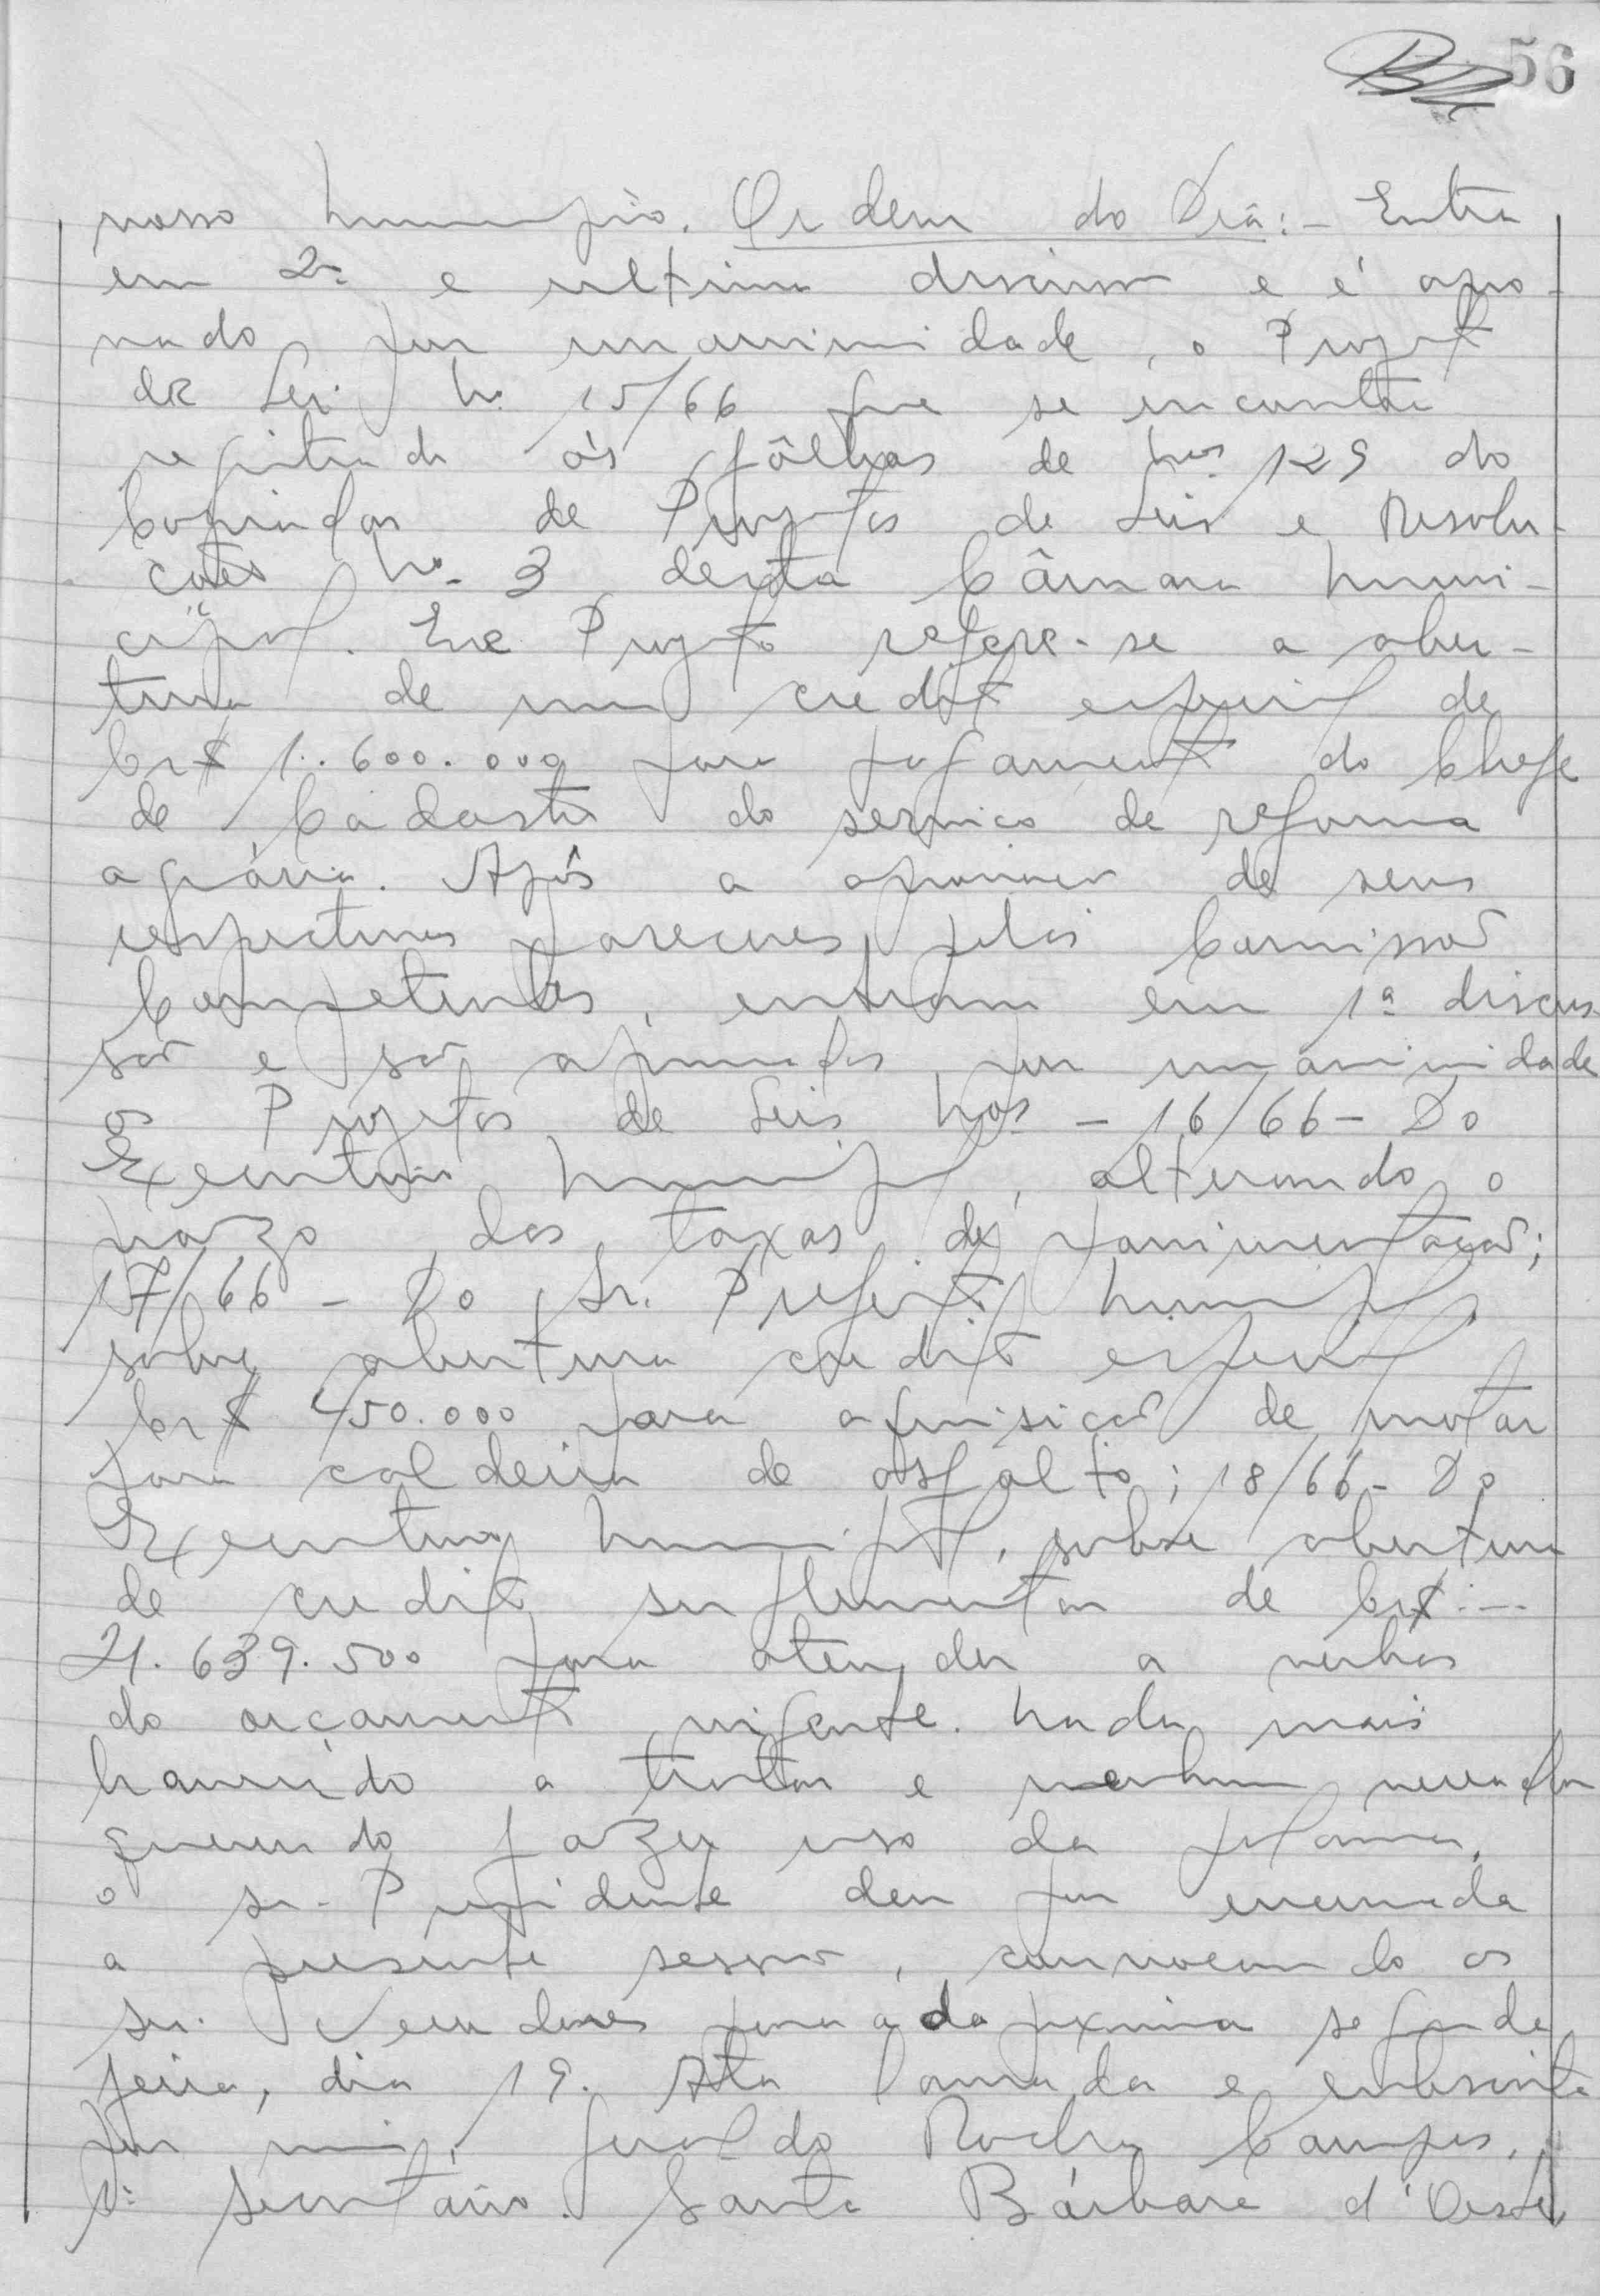 56
nosso município. Ordem do Dia: - Entra
em 2ª e ultima discussão e é apro-
vado por unanimidade, o Projeto
de Lei nº 15/66 que se encontra
registrado às fôlhas de nos. 129 do
Copiador de Projetos de Leis e Resolu-
ções nº 3 desta Câmara Muni-
cipal. Esse Projeto refere-se a aber-
tura de um credito especial de
Cr$ 1.600.000 para pagamento do Chefe
de Cadastro do serviço de reforma
agrária. Após a aprovação de seus
respectivos pareceres pelas Comissões
Competentes, entram em 1ª discus-
são e são aprovados por unanimidade
os Projetos de Leis nos - 16/66 - Do
Executivo Municipal, alterando o
prazo das taxas de pavimentação;
17/66 - Do Sr. Prefeito Municipal,
sobre abertura credito especial
Cr$ 450.000 para aquisição de motor
para caldeira de asfalto; 18/66 - Do
Executivo Municipal, sobre abertura
de credito suplementar de Cr$: --
21.639.500 para atender a verbas
do orçamento vigente. Nada mais
havendo a tratar e nenhum vereador
querendo fazer uso da palavra,
o sr. Presidente deu por encerrada
a presente sessão, convocando os
srs. Vereadores para a da proxima segunda
feira, dia 19. Ata lavrada e subscrita
por mim, Geraldo Rocha Campos,
1º Secretário. Santa Bárbara d'Oeste,